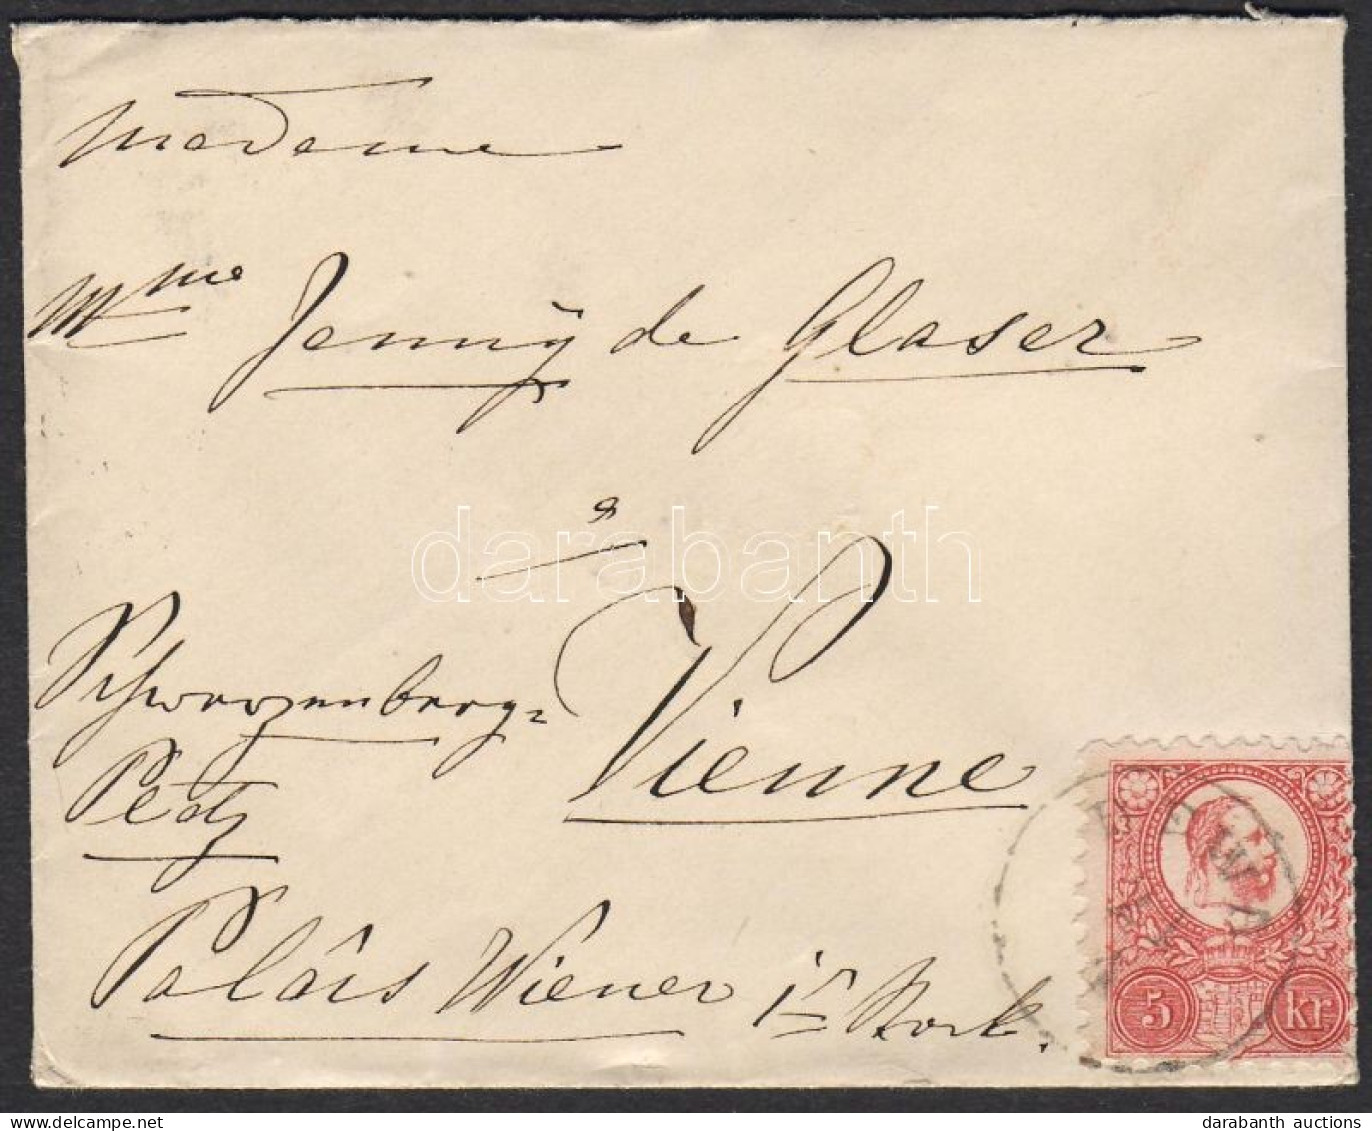 Madame
Mme Jennÿ de Glaser
à
Vienne
Schwarzenberg=
Platz
Palais Wiener 1r Stock.
5 kr
darabanth
darabanth auctions